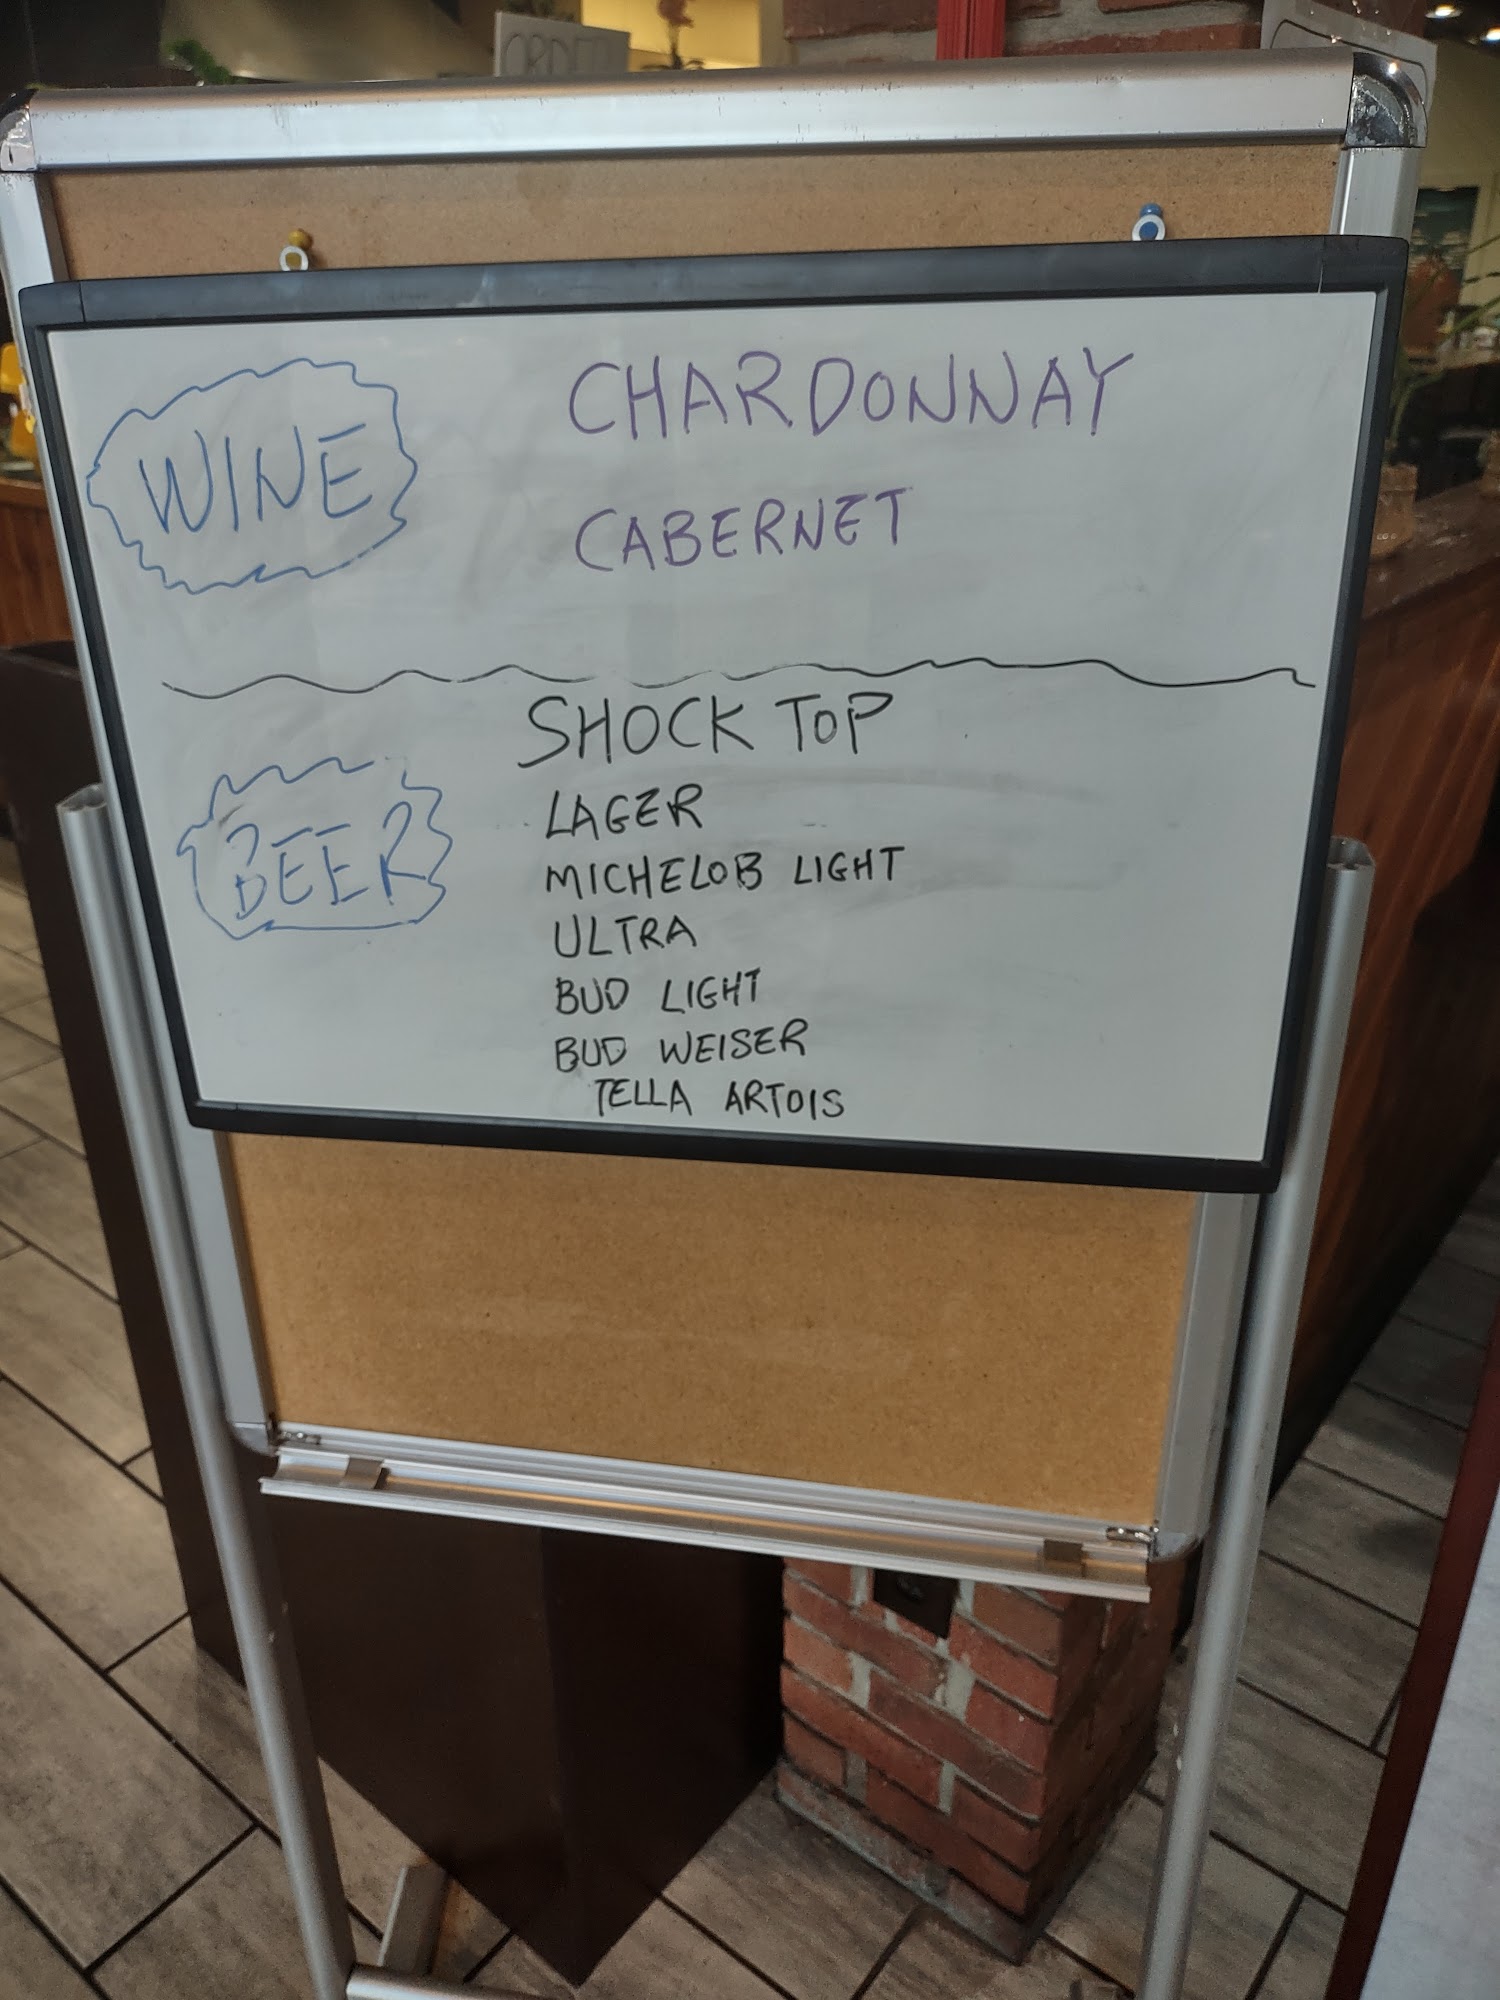 ORDER
WINE
CHARDONNAY
CABERNET
BEER
SHOCK TOP
LAGER
MICHELOB LIGHT
ULTRA
BUD LIGHT
BUD WEISER
TELLA ARTOIS